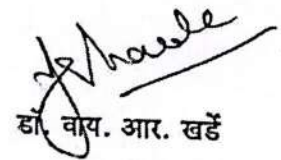 डॉ. वाय. आर. खर्डे